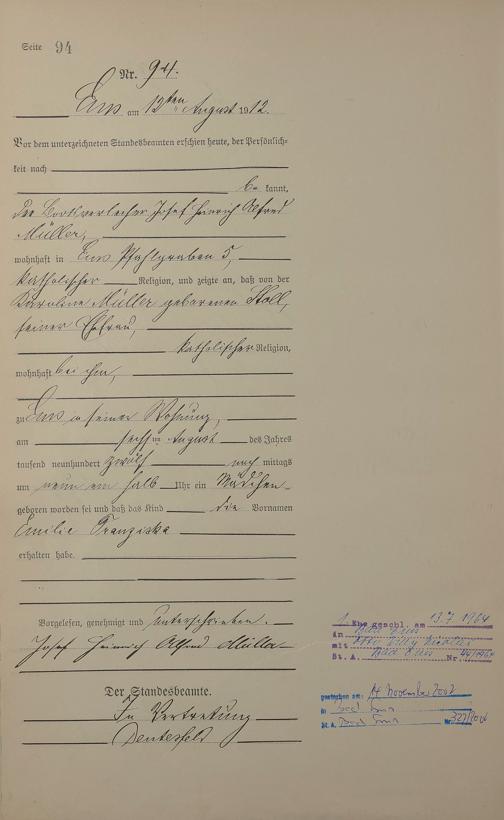 Seite 94
Nr. 94.
Ems am 12ten August 1912.
Vor dem unterzeichneten Standesbeamten erschien heute, der Persönlich-
keit nach
be kannt,
der Josef Heinrich Alfred
Müller,
wohnhaft in Ems Pfahlgraben 5,
katholischer Religion, und zeigte an, daß von der
Karoline Müller geborenen Stoll,
seiner Ehefrau,
katholischer Religion,
wohnhaft bei ihm,
zu Ems in seiner Wohnung,
am sechsten August des Jahres
tausend neunhundert zwölf nach mittags
um neun ein halb Uhr ein Mädchen
geboren worden sei und daß das Kind die Vornamen
Emilie Franziska
erhalten habe.
Vorgelesen, genehmigt und unterschrieben.
Josef Heinrich Alfred Müller
Der Standesbeamte.
In Vertretung
1. Ehe geschl. am 13.7.1964
in Bad Ems
mit
St. A. Bad Ems Nr. 44/1964
gestorben am: 17. November 2002
in Bad Ems
St. A. Bad Ems Nr.